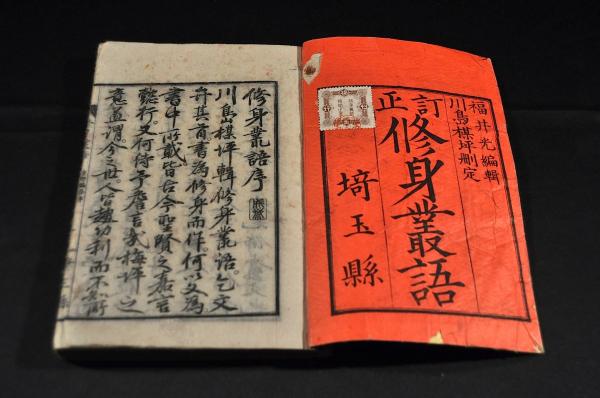 福井光編輯
川島楳坪刪定
訂正
修身叢語
埼玉縣
修身叢語序
川島楳坪輯修身叢語。乞文
弁其首書為修身而作。何以文為
書中所載皆古今聖賢之嘉言
懿行。又何待予詹言哉梅坪之
意盖謂今之世人皆趨功利而不知所